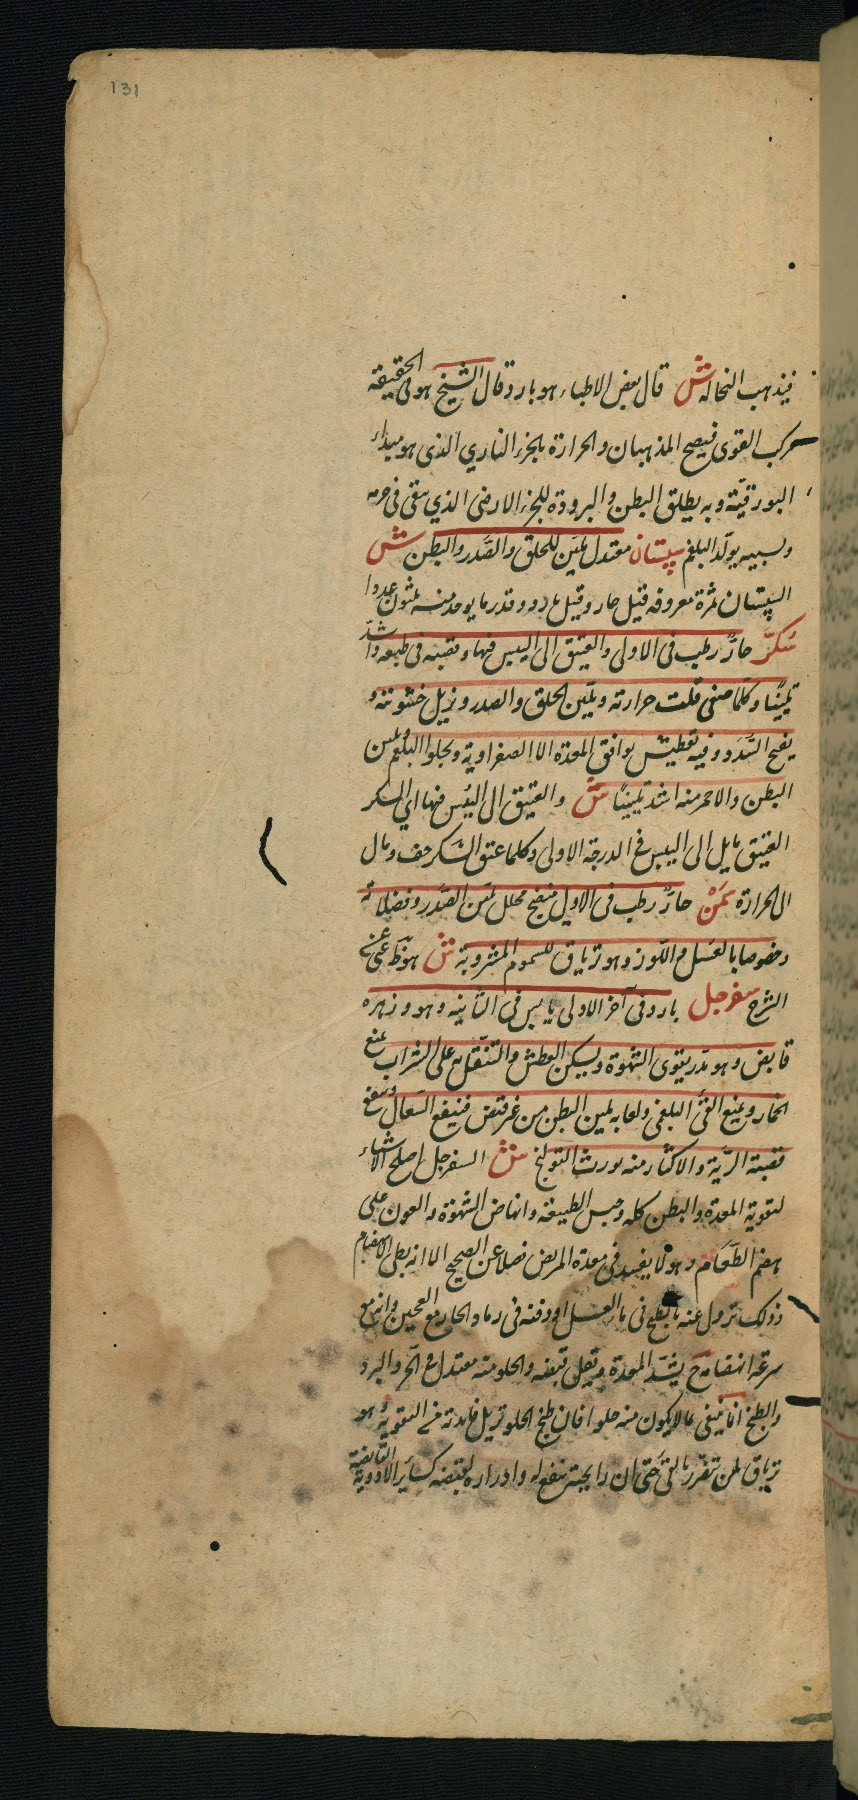 131
فيذهب النخالة ش قال بعض الاطباء هو بارد قال الشيخ هو فى الحقيقة
مركب القوى فيصح المذهبان والحرارة بالجزء النارى الذى هو مبداء
البورقيّة وبه يطلق البطن والبرودة للجزء الارضى الذي يبقى فى جرمه
وبسببه يولّد البلغم سپستان معتدل يليّن للحلق والصّدر والبطن ش
السپستان ثمرة معروفه قيل حار وقيل بارد وقدر ما يوخذ منه ثلثون عددا
سُكّرَ حارّ رطب فى الاولى والعتيق الى اليبس فيها وقصبه فى طبعه واشدّ
تليينًا وكلّما صفى قلت حرارته ويليّن الحلق والصدر ويزيل خشونته و
يفتح السّدَد وفيه تعطيش يوافق المعدة الا الصفراوية ويجلوا البلغم ويلين
البطن والاحمر منه اشد تليينًا ش والعتيق الى اليُبس فيها اي السكر
العتيق مايل الى اليبس فى الدرجة الاولى وكلما عتق السّكر جف ومال
الى الحرارة سَمْن حارّ رطب فى الاول منضج محلل يليّن الصّدر وفضلاته
وخصوصا بالعسل واللّوز وهو ترياق للسموم المشروبة ش هو ظ غنى عن
الشرح سفرجل بارد فى آخر الاولى يابس فى الثانيه وهو وزهره
قابض وهو مدرّ يقوى الشهوة ويسكن العطش والتنقّل به على الشراب يمنع
الخمار ويمنع القئ البلغمى ولعابه يلين البطن من غير قبض فينفع السعال وينفع
قصبة الريّة والاكثار منه يورث القولنج ش السفرجل اصلح الاشياء
لتقوية المعدة والبطن كله وحبس الطبيعة وانهاض الشهوة والعون على
هضم الطّعَام وهو لا يفسد فى معدة المريض فضلا عن الصحيح الا انه بطى الانهضام
وذلك تزول عنه بالطبخ فى ماء العسل او دفنه فى رماد حار مع العجين وانه مع
سرعة انهضامه ح يشدّ المعدة ويقلّ قبضه والحلو منه معتدل فى الحرّ والبرد
والطبخ انما ينبغى لما لا يكون منه حلوا فان طبخ الحلو تزيل فايدته فى التقوية وهو
ترياق لمن تضرر بالقى حتى ان رايحته ينفع له وادراره لقبضه كساير الادوية القابضة